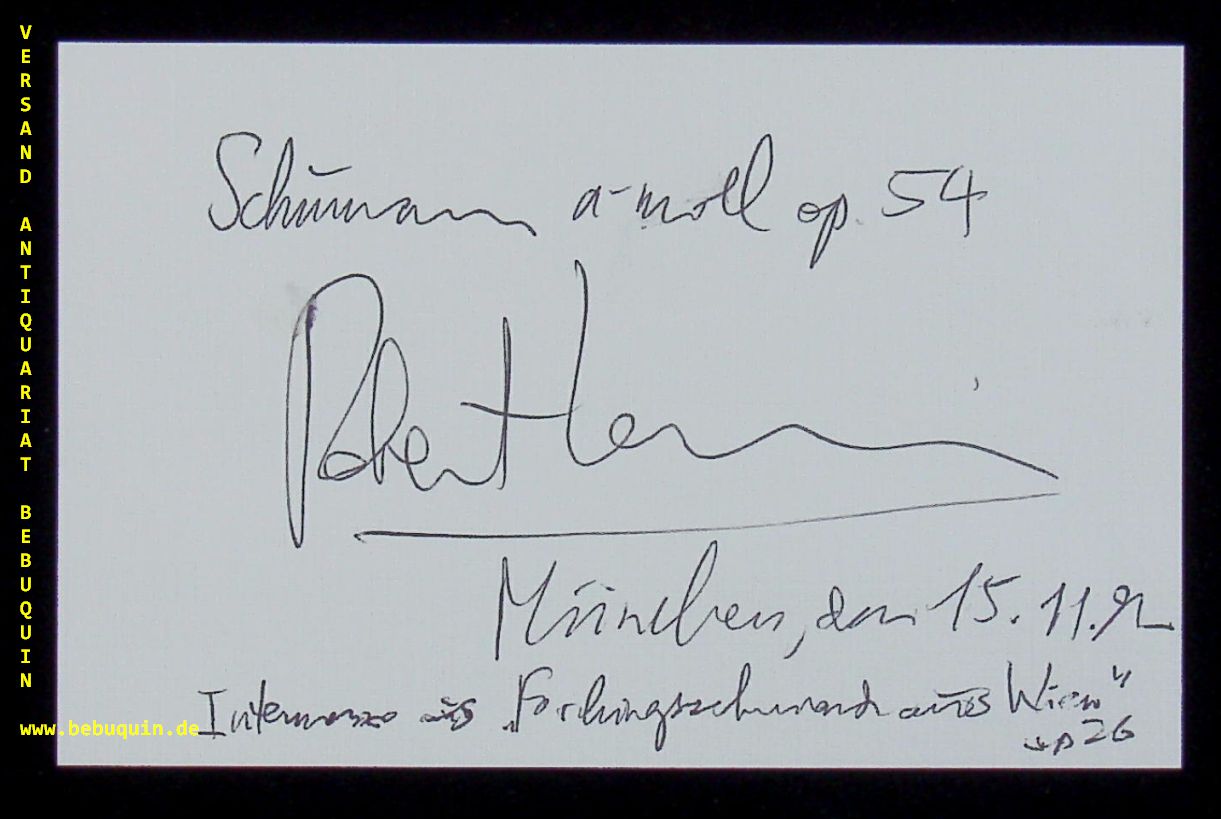 VERSAND ANTIQUARIAT BEBUQUIN
www.bebuquin.de
Schumann a-moll op. 54
Robert
München, den 15.11.92
Intermezzo aus „Faschingsschwank aus Wien"
op 26